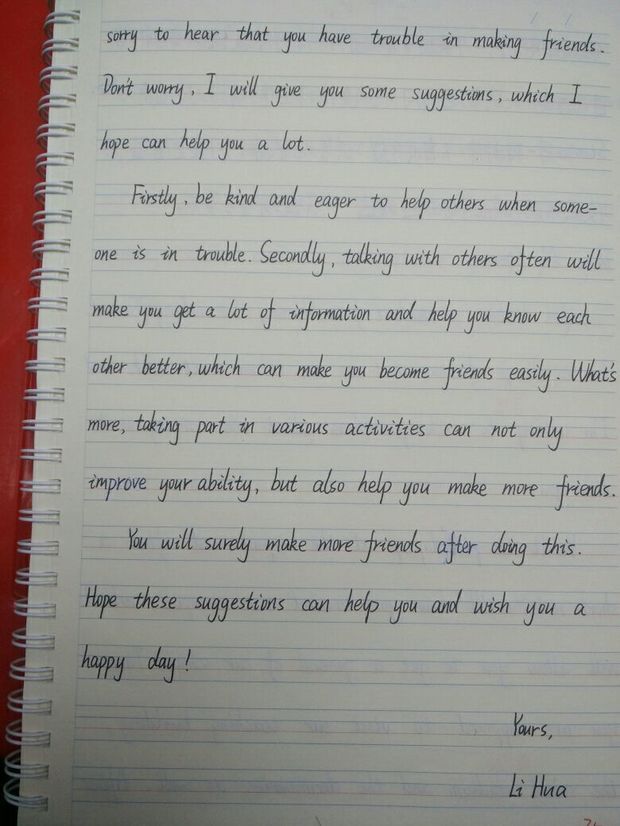 sorry to hear that you have trouble in making friends.
Don't worry, I will give you some suggestions, which I
hope can help you a lot.
Firstly, be kind and eager to help others when some-
one is in trouble. Secondly, talking with others often will
make you get a lot of information and help you know each
other better, which can make you become friends easily. What's
more, taking part in various activities can not only
improve your ability, but also help you make more friends.
You will surely make more friends after doing this.
Hope these suggestions can help you and wish you a
happy day!
Yours,
Li Hua